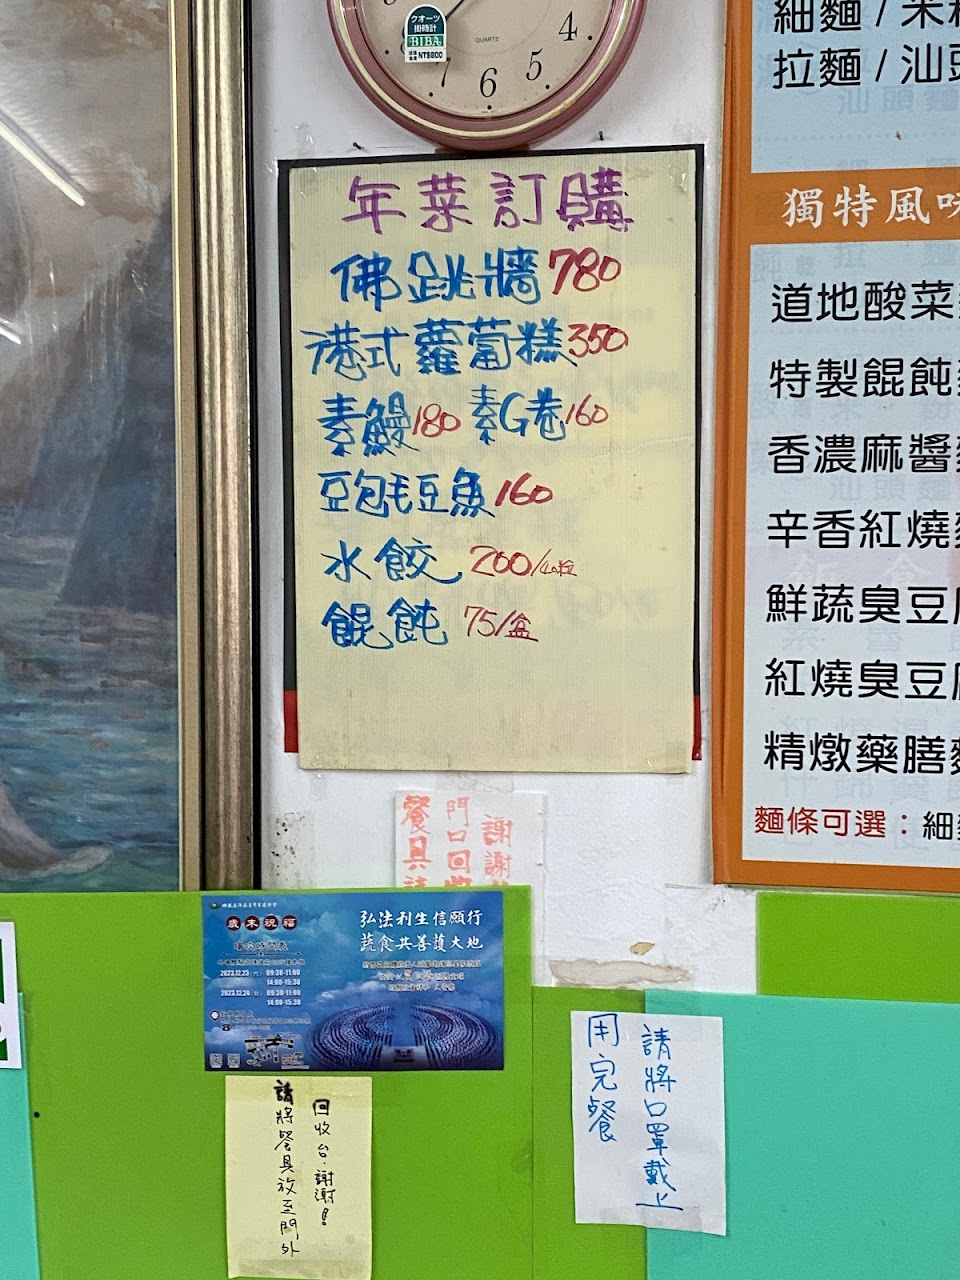 クオーツ
掛時計
BIBA
NT$800
QUARTZ
4
5
6
7
8
年菜訂購
佛跳牆780
港式蘿蔔糕350
素鰻180 素G卷160
豆包毛豆魚160
水餃 200/40粒
餛飩 75/盒
細麵/米
拉麵/汕頭
獨特風味
道地酸菜
特製餛飩
香濃麻醬
辛香紅燒
鮮蔬臭豆
紅燒臭豆
精燉藥膳
麵條可選:細
謝謝
門口回收
餐具請
歲末祝福
弘法利生信願行
蔬食共善護大地
2023.12.23(六) 09:30-11:00
14:00-15:30
2023.12.24(日) 09:30-11:00
14:00-15:30
請將餐具放至門外
回收台.謝謝!
請將口罩戴上
用完餐